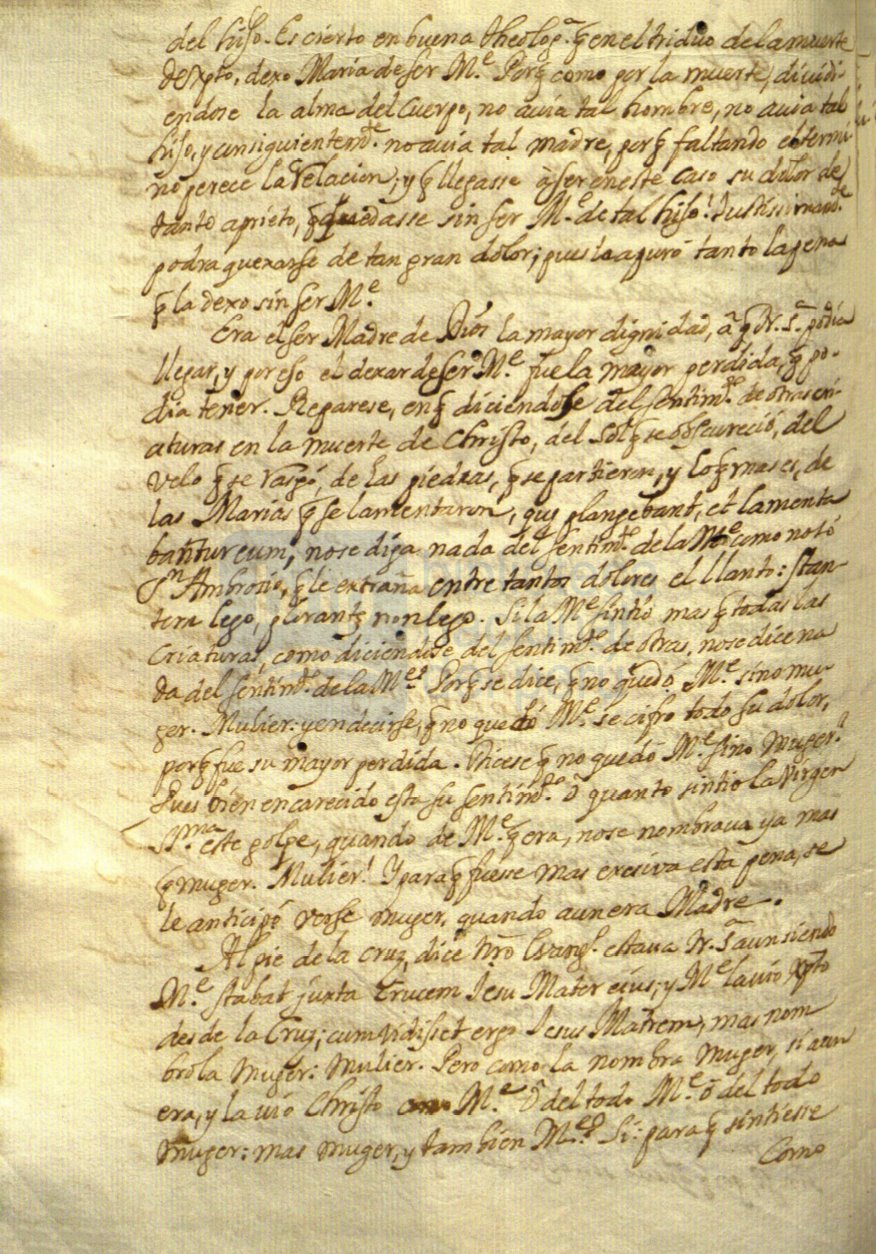 del hijo. Es cierto en buena theolog.ª q̃ en el triduo de la muerte
de Xpto, dexo Maria de ser M.e Porq̃ como por la muerte, dividi-
endose la alma del cuerpo, no avia tal hombre, no avia tal
hijo, y consiguientem.te no avia tal madre, porq̃ faltando el termi
no perece la relacion; y q̃ llegasse à ser en este caso su dolor de
tanto aprieto, q̃ quedasse sin ser M.e de tal hijo! Justissimam.te
podra quexarse de tan gran dolor; pues la apuró tanto la pena
q̃ la dexo sin ser M.e
Era el ser Madre de Dios la mayor dignidad, à q̃ N.r S.ª podia
llegar, y por eso el dexar de ser M.e fue la mayor perdida, q̃ po-
dia tener. Reparese, en q̃ diciendose del sentim.to de otras cri-
aturas en la muerte de Christo, del sol q̃ se obscureció, del
velo q̃ se rasgó, de las piedras, q̃ se partieron, y lo q̃ mas es, de
las Marias q̃ se lamentaron, que plangebant, et lamenta
bantur eum; no se diga nada del sentim.to de la M.e como notó
S.n Ambrosio, q̃ le extraña entre tantos dolores el llanto: stan-
tem lego, plorantẽ non lego. Si la M.e sintió mas q̃ todas las
criaturas, como diciendose del sentim.to de otras, no se dice na
da del sentim.to de la M.e? Porq̃ se dice, q̃ no quedó M.e sino mu-
ger. Mulier: y en decirse, q̃ no quedó M.e se cifro todo su dolor,
porq̃ fue su mayor perdida. Dicese q̃ no quedó M.e sino muger?
Pues bien encarecido esta su sentim.to O quanto sintio la Virgen
SS.ma este golpe, quando de M.e q̃ era, no se nombrava ya mas
q̃ muger. Mulier! Y para q̃ fuesse mas excsiva esta pena, se
le anticipó verse muger, quando aun era Madre.
Al pie de la cruz, dice nr̃o Evang.ta estava N.r S.ª aun siendo
M.e stabat juxta Crucem Iesu Mater eius; y M.e la vio Xpto
desde la Cruz; cum vidisset ergo Iesus Matrem, mas nom
brola Muger: Mulier. Pero como la nombra Muger, si aun
era, y la vio Christo M.e O del todo M.e ò del todo
Muger: mas muger, y tambien M.e? Si: para q̃ sintiesse
Como